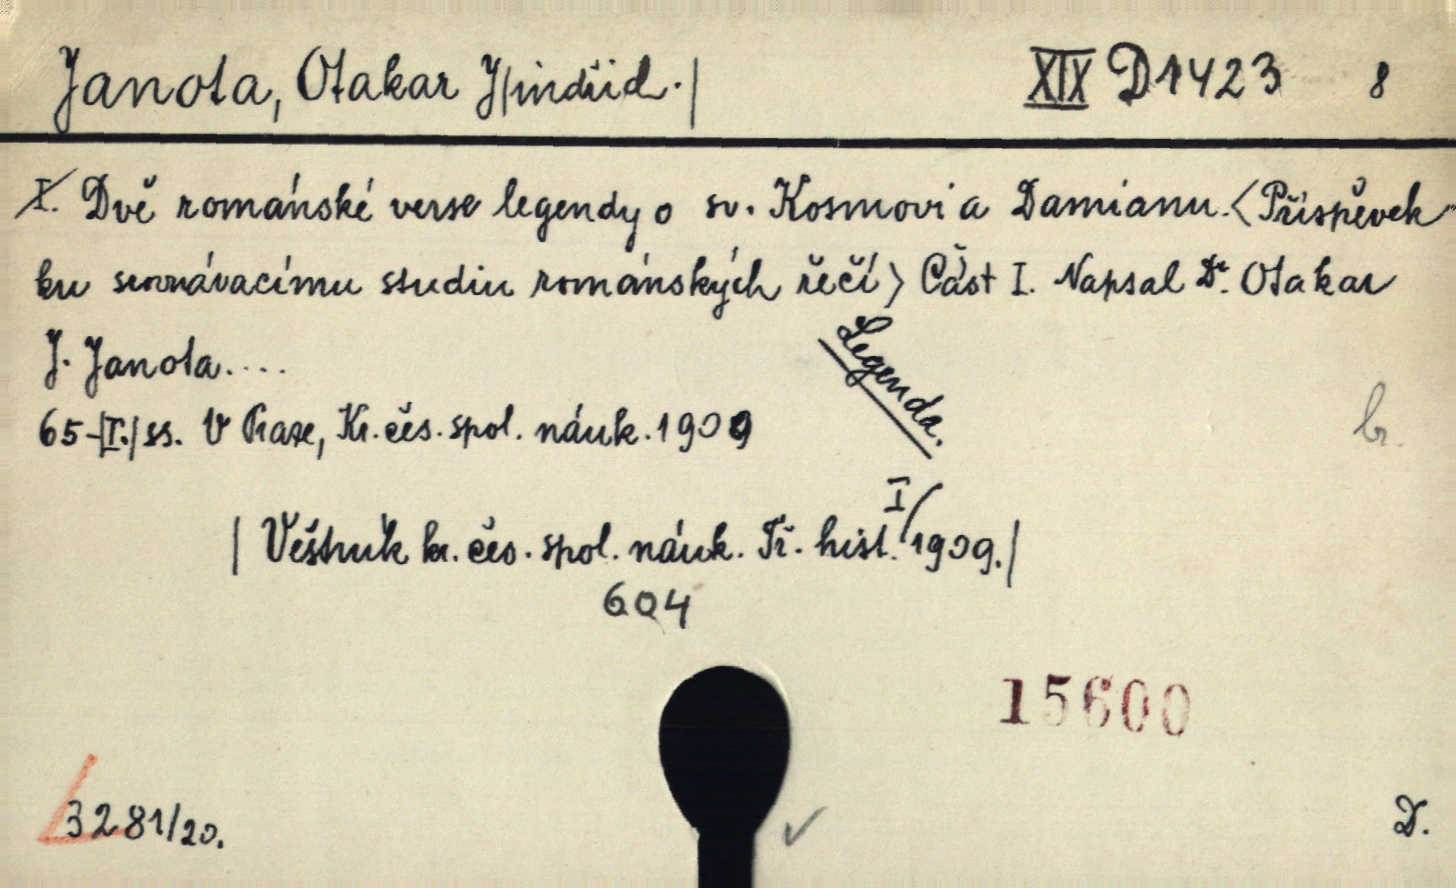 Janota, Otakar J|indřich.| XIX D 1423 8
I. Dvě románské verse legendy o sv. Kosmovi a Damianu. <Příspěvek
ku srovnávacímu studiu románských řečí> Část I. Napsal Dr. Otakar
J. Janota....
Legenda.
65-|I.| ss. V Praze, Kr. čes. spol. náuk. 1909
br.
| Věstník kr. čes. spol. náuk. Tř. hist. I/1909.|
604
15600
3281/20.
D.